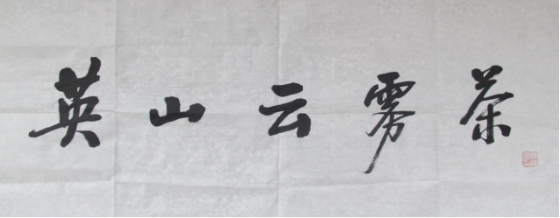 英山云雾茶